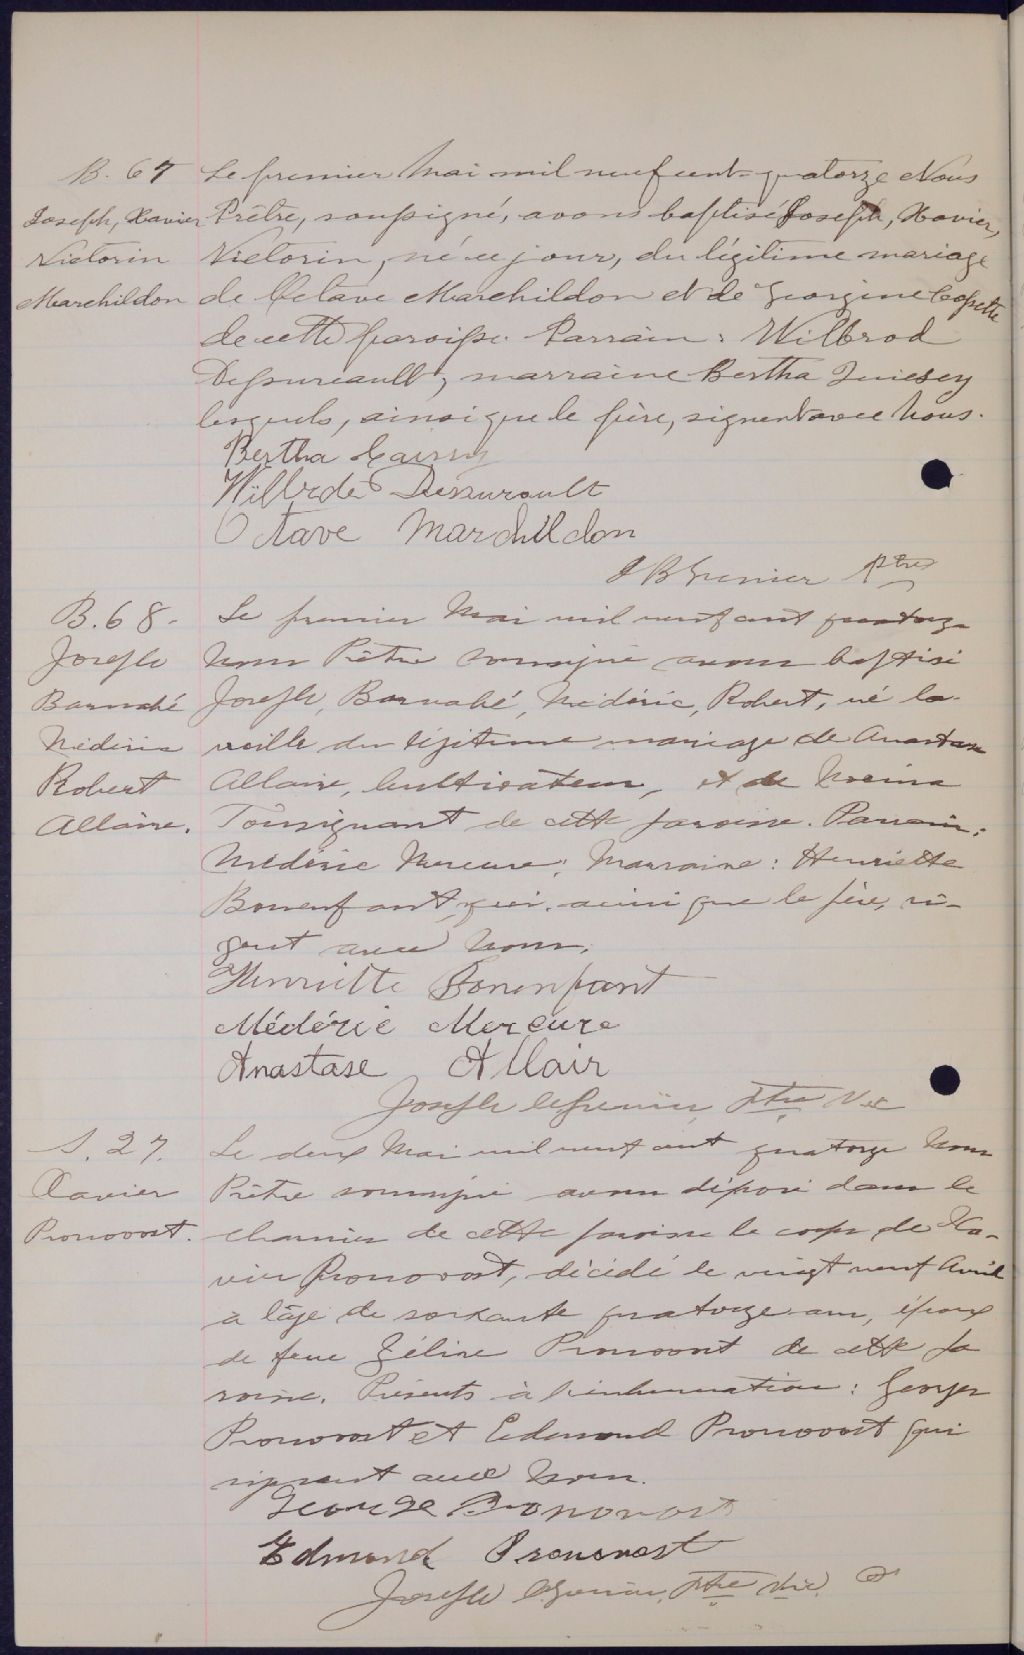 B. 67
Joseph, Xavier
Victorin
Marchildon
Le premier Mai mil neuf cent-quatorze Nous
Prêtre, soussigné, avons baptisé Joseph, Xavier,
Victorin, né ce jour, du légitime mariage
de Octave Marchildon et de Georgine Cossette
de cette paroisse. Parrain: Wilbrod
Dessureault, marraine Bertha
lesquels, ainsi que le père, signent avec Nous.
Bertha
Wilbrdé Dessurault
Octave Marchildon
J B Grenier Ptre
B. 68.
Joseph
Barnabé
Médéric
Robert
Allaire.
Le premier Mai mil neuf cent quatorze
Nous Prêtre soussigné avons baptisé
Joseph, Barnabé, Médéric, Robert, né la
veille du légitime mariage de Anastase
Allaire, Cultivateur, et de Noëmie
Tousignant de cette paroisse. Parrain:
Médéric Mercure; Marraine: Henriette
Bonenfant, qui, ainsi que le père, si-
gent avec Nous.
Henriette Bonenfant
Médéric Mercure
Anastase Allair
Joseph Grenier, Ptre Vic
S. 27.
Xavier
Pronovost.
Le deux Mai mil neuf cent quatorze Nous
Prêtre soussigné avons déposé dans le
charnier de cette paroisse le corps de Xa-
vier Pronovost, décédé le vingt neuf Avril
à l'âge de soixante quatorze ans, époux
de feue Zéline Pronovost de cette pa
roisse. Présents à l'inhumation: Georges
Pronovost et Edmond Pronovost qui
signent avec Nous.
George Pronovost
Edmond Pronovost
Joseph Grenier, Ptre Vic.